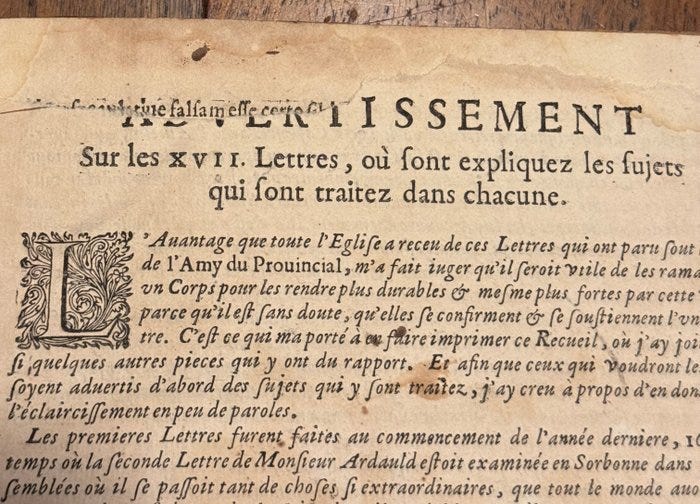 falsam esse certo
ADVERTISSEMENT
Sur les XVII. Lettres, où ſont expliquez les ſujets
qui ſont traitez dans chacune.
L'Auantage que toute l'Egliſe a receu de ces Lettres qui ont paru ſout
de l'Amy du Prouincial, m'a fait iuger qu'il ſeroit vtile de les rama
vn Corps pour les rendre plus durables & meſme plus fortes par cette
parce qu'il eſt ſans doute, qu'elles ſe confirment & ſe ſouſtiennent l'vn
tre. C'eſt ce qui ma porté a en faire imprimer ce Recueil, où j'ay joi
ſi quelques autres pieces qui y ont du rapport. Et afin que ceux qui voudront le
ſoyent aduertis d'abord des ſujets qui y ſont traitez, j'ay creu à propos d'en don
l'éclairciſſement en peu de paroles.
Les premieres Lettres furent faites au commencement de l'année derniere, 16
temps où la ſeconde Lettre de Monſieur Ardauld eſtoit examinée en Sorbonne dans
ſemblées où il ſe paſſoit tant de choſes ſi extraordinaires, que tout le monde au